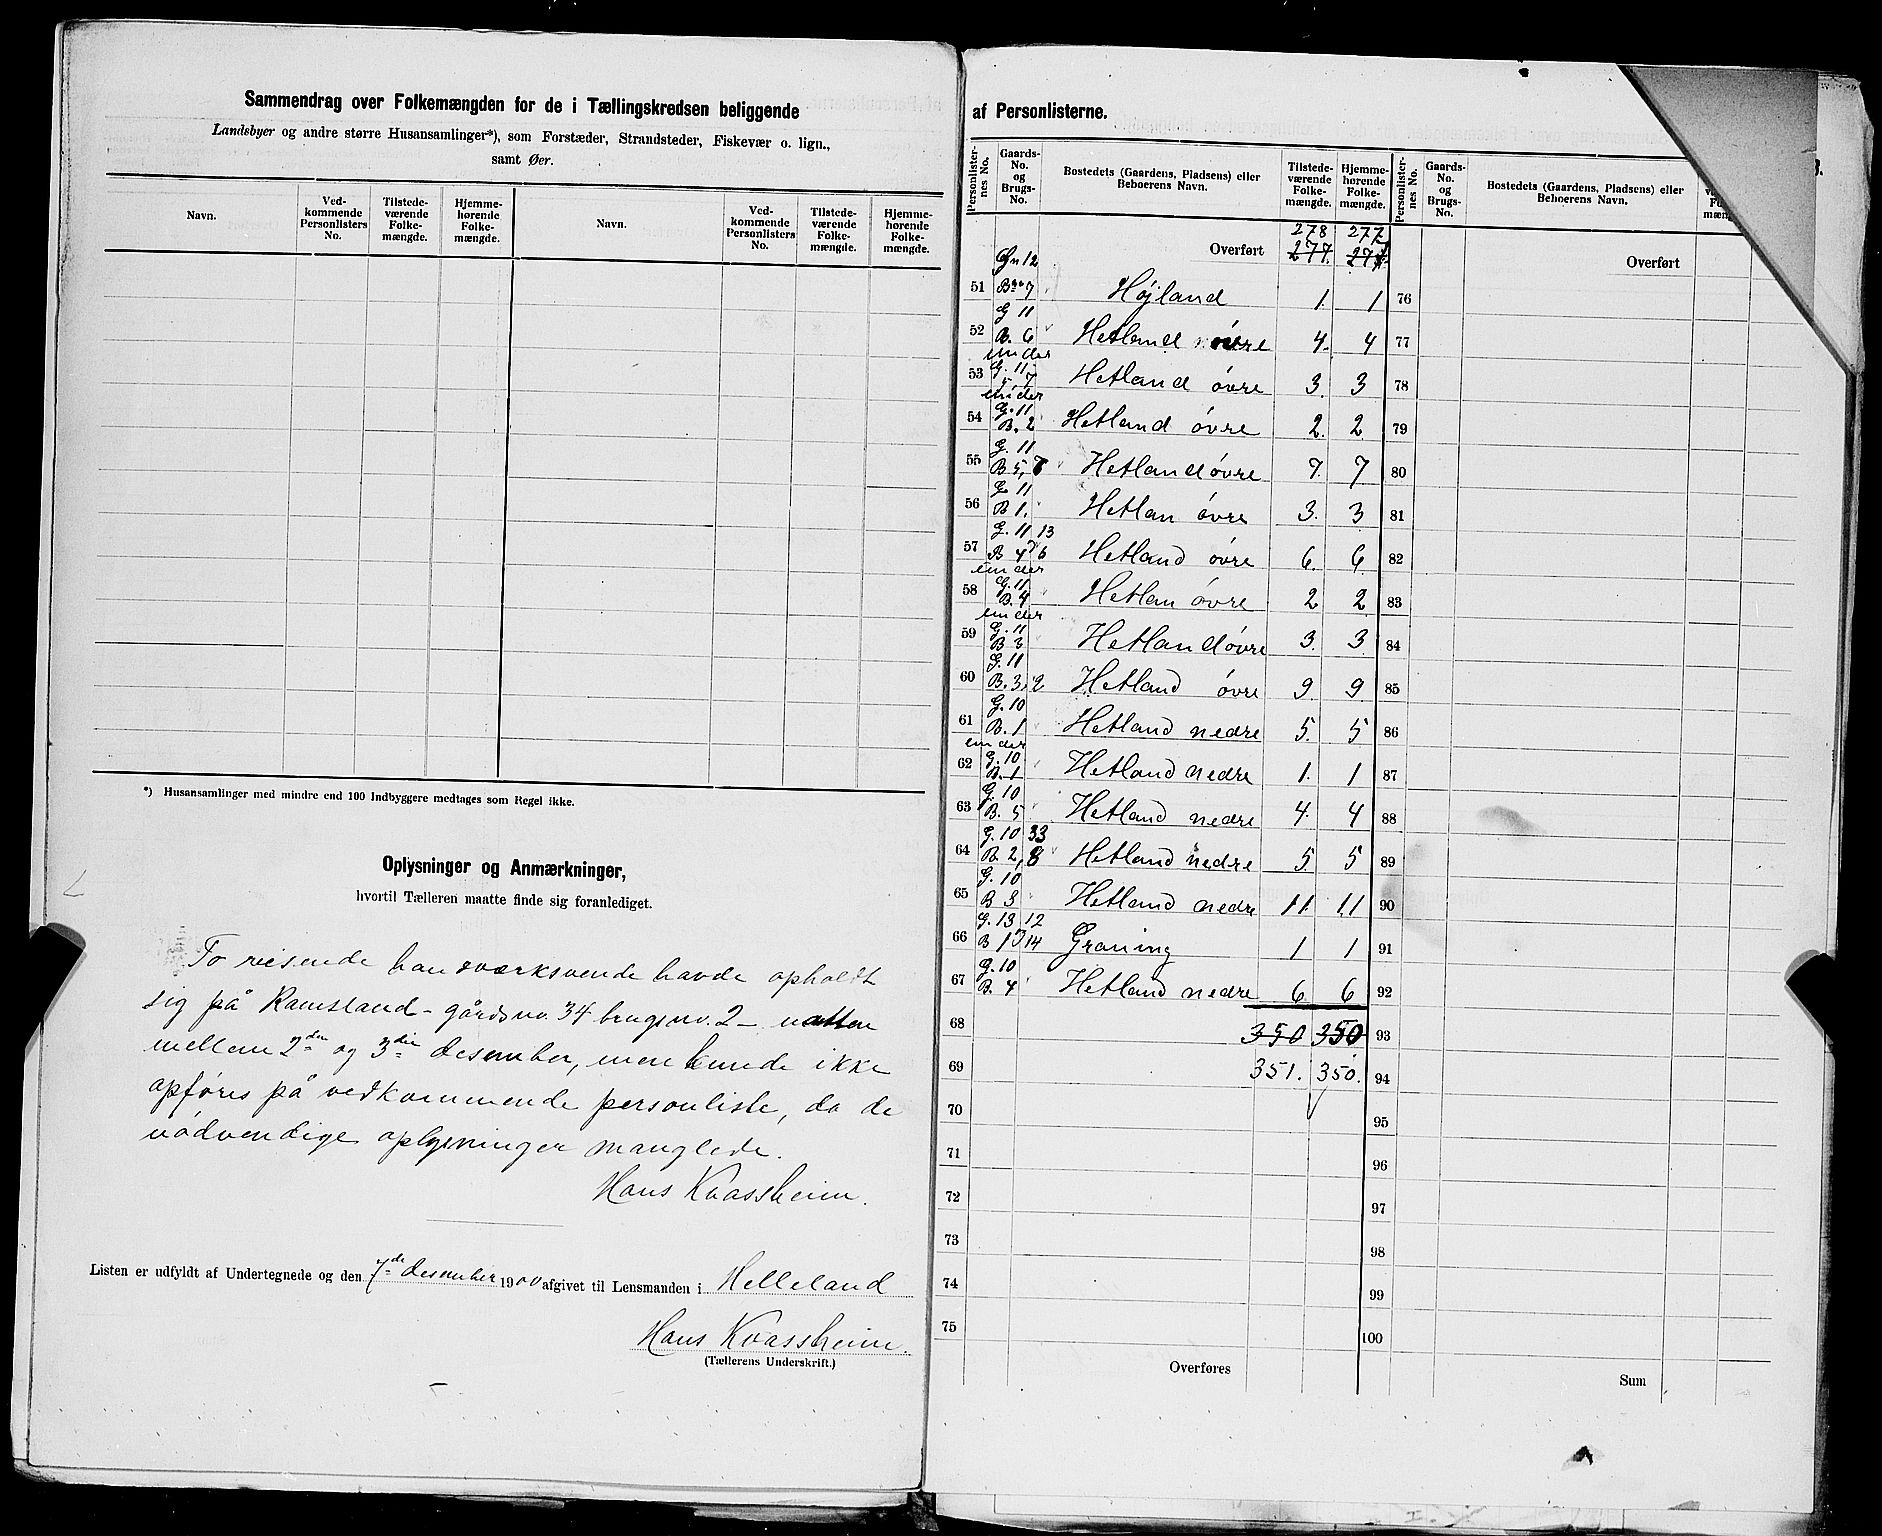 Sammendrag over Folkemængden for de i Tællingskredsen beliggende
Landsbyer og andre større Husansamlinger*), som Forstæder, Strandsteder, Fiskevær o. lign.,
samt Øer.
Navn. Ved-kommende Personlisters No. Tilstede-værende Folke-mængde. Hjemme-hørende Folke-mængde. Navn. Ved-kommende Personlisters No. Tilstede-værende Folke-mængde. Hjemme-hørende Folke-mængde.
*) Husansamlinger med mindre end 100 Indbyggere medtages som Regel ikke.
Oplysninger og Anmærkninger,
hvortil Tælleren maatte finde sig foranlediget.
To reisende handværksvende havde opholdt
sig på Ramsland - gårdsno. 34 brugsno. 2 - natten
mellem 2den og 3die desember, men kunde ikke
opføres på vedkommende personliste, da de
nødvendige oplysninger manglede.
Hans Kvassheim.
Listen er udfyldt af Undertegnede og den 7de desember 1900 afgivet til Lensmanden i Helleland
Hans Kvassheim.
(Tællerens Underskrift.)
af Personlisterne.
Personlister-nes No. Gaards-No. og Brugs-No. Bostedets (Gaardens, Pladsens) eller Beboerens Navn. Tilstede-værende Folke-mængde. Hjemme-hørende Folke-mængde. Personlister-nes No. Gaards-No. og Brugs-No. Bostedets (Gaardens, Pladsens) eller Beboerens Navn.
278 277
Overført 277. Overført
51 Gn 12 Bno 7 Højland 1. 1 76
52 G 11 B. 6 Hetland 4. 4 77
53 under G. 11 5, 7 Hetland øvre 3. 3 78
54 under G. 11 B. 2 Hetland øvre 2. 2 79
55 G. 11 B 5, 7 Hetland øvre 7. 7 80
56 G 11 B 1. Hetlan øvre 3. 3 81
57 G. 11 13 B 4 6 Hetland øvre 6. 6. 82
58 under G. 11. B. 4 Hetlan øvre 2 2 83
59 under G. 11 B 3 Hetland øvre 3. 3. 84
60 G. 11 B. 3, 2 Hetland øvre 9 9. 85
61 G. 10 B. 1 Hetland nedre 5. 5 86
62 under G. 10 B. 1 Hetland nedre 1. 1 87
63 G. 10 B. 5 Hetland nedre 4. 4 88
64 G. 10 33 B. 2, 8 Hetland nedre 5. 5 89
65 G. 10 B 3 Hetland nedre 11. 11 90
66 G. 13 12 B 1 14 Graning 1 1 91
67 G. 10 B. 4 Hetland nedre 6 6 92
68 350 350 93
69 351. 350. 94
70 95
71 96
72 97
73 98
74 99
75 100
Overføres Sum